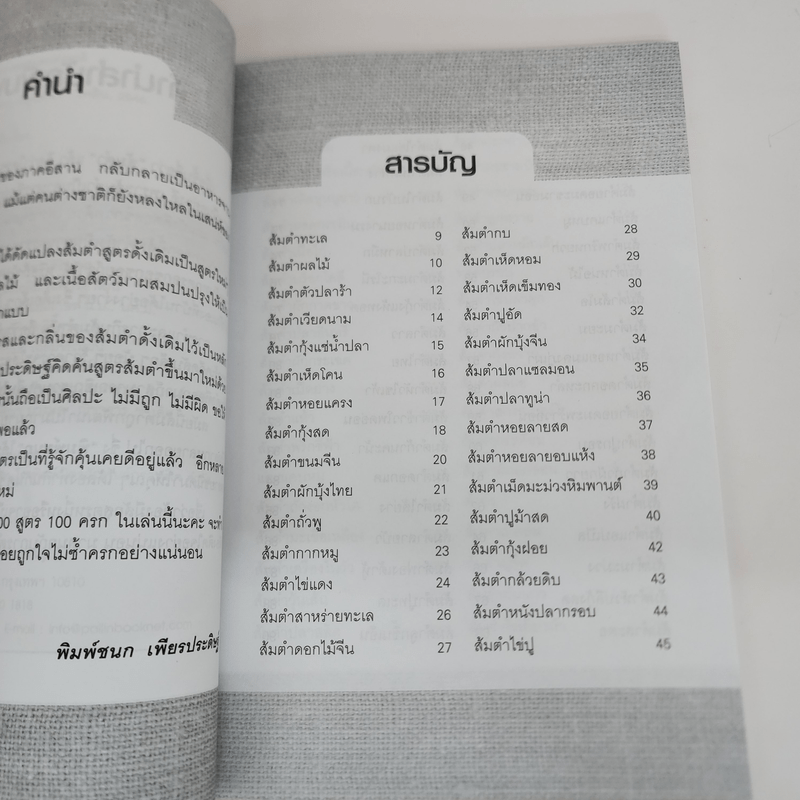 คำนำ
ของภาคอีสาน กลับกลายเป็นอาหาร
แม้แต่คนต่างชาติก็ยังหลงใหลในเสน่ห์
ได้ดัดแปลงส้มตำสูตรดั้งเดิมเป็นสูตรใหม่
และเนื้อสัตว์มาผสมปนปรุงให้
และกลิ่นของส้มตำดั้งเดิมไว้เป็นหลัก
ประดิษฐ์คิดค้นสูตรส้มตำขึ้นมาใหม่ด้วย
นั้นถือเป็นศิลปะ ไม่มีถูก ไม่มีผิด ขอ
พอแล้ว
เป็นที่รู้จักคุ้นเคยดีอยู่แล้ว อีกหลาย
สูตร 100 ครก ในเล่มนี้นะคะ
ถูกใจไม่ซ้ำครกอย่างแน่นอน
พิมพ์ชนก เพียรประดิษฐ์
สารบัญ
ส้มตำทะเล 9
ส้มตำผลไม้ 10
ส้มตำตัวปลาร้า 12
ส้มตำเวียดนาม 14
ส้มตำกุ้งแช่น้ำปลา 15
ส้มตำเห็ดโคน 16
ส้มตำหอยแครง 17
ส้มตำกุ้งสด 18
ส้มตำขนมจีน 20
ส้มตำผักบุ้งไทย 21
ส้มตำถั่วพู 22
ส้มตำกากหมู 23
ส้มตำไข่แดง 24
ส้มตำสาหร่ายทะเล 26
ส้มตำดอกไม้จีน 27
ส้มตำกบ 28
ส้มตำเห็ดหอม 29
ส้มตำเห็ดเข็มทอง 30
ส้มตำปูอัด 32
ส้มตำผักบุ้งจีน 34
ส้มตำปลาแซลมอน 35
ส้มตำปลาทูน่า 36
ส้มตำหอยลายสด 37
ส้มตำหอยลายอบแห้ง 38
ส้มตำเม็ดมะม่วงหิมพานต์ 39
ส้มตำปูม้าสด 40
ส้มตำกุ้งฝอย 42
ส้มตำกล้วยดิบ 43
ส้มตำหนังปลากรอบ 44
ส้มตำไข่ปู 45